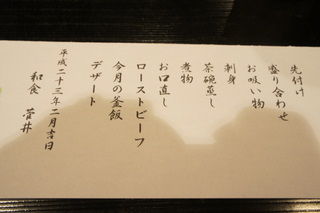 先付け
盛り合わせ
お吸い物
刺身
茶碗蒸し
煮物
お口直し
ローストビーフ
今月の釜飯
デザート
平成二十三年二月吉日
和食 菅井